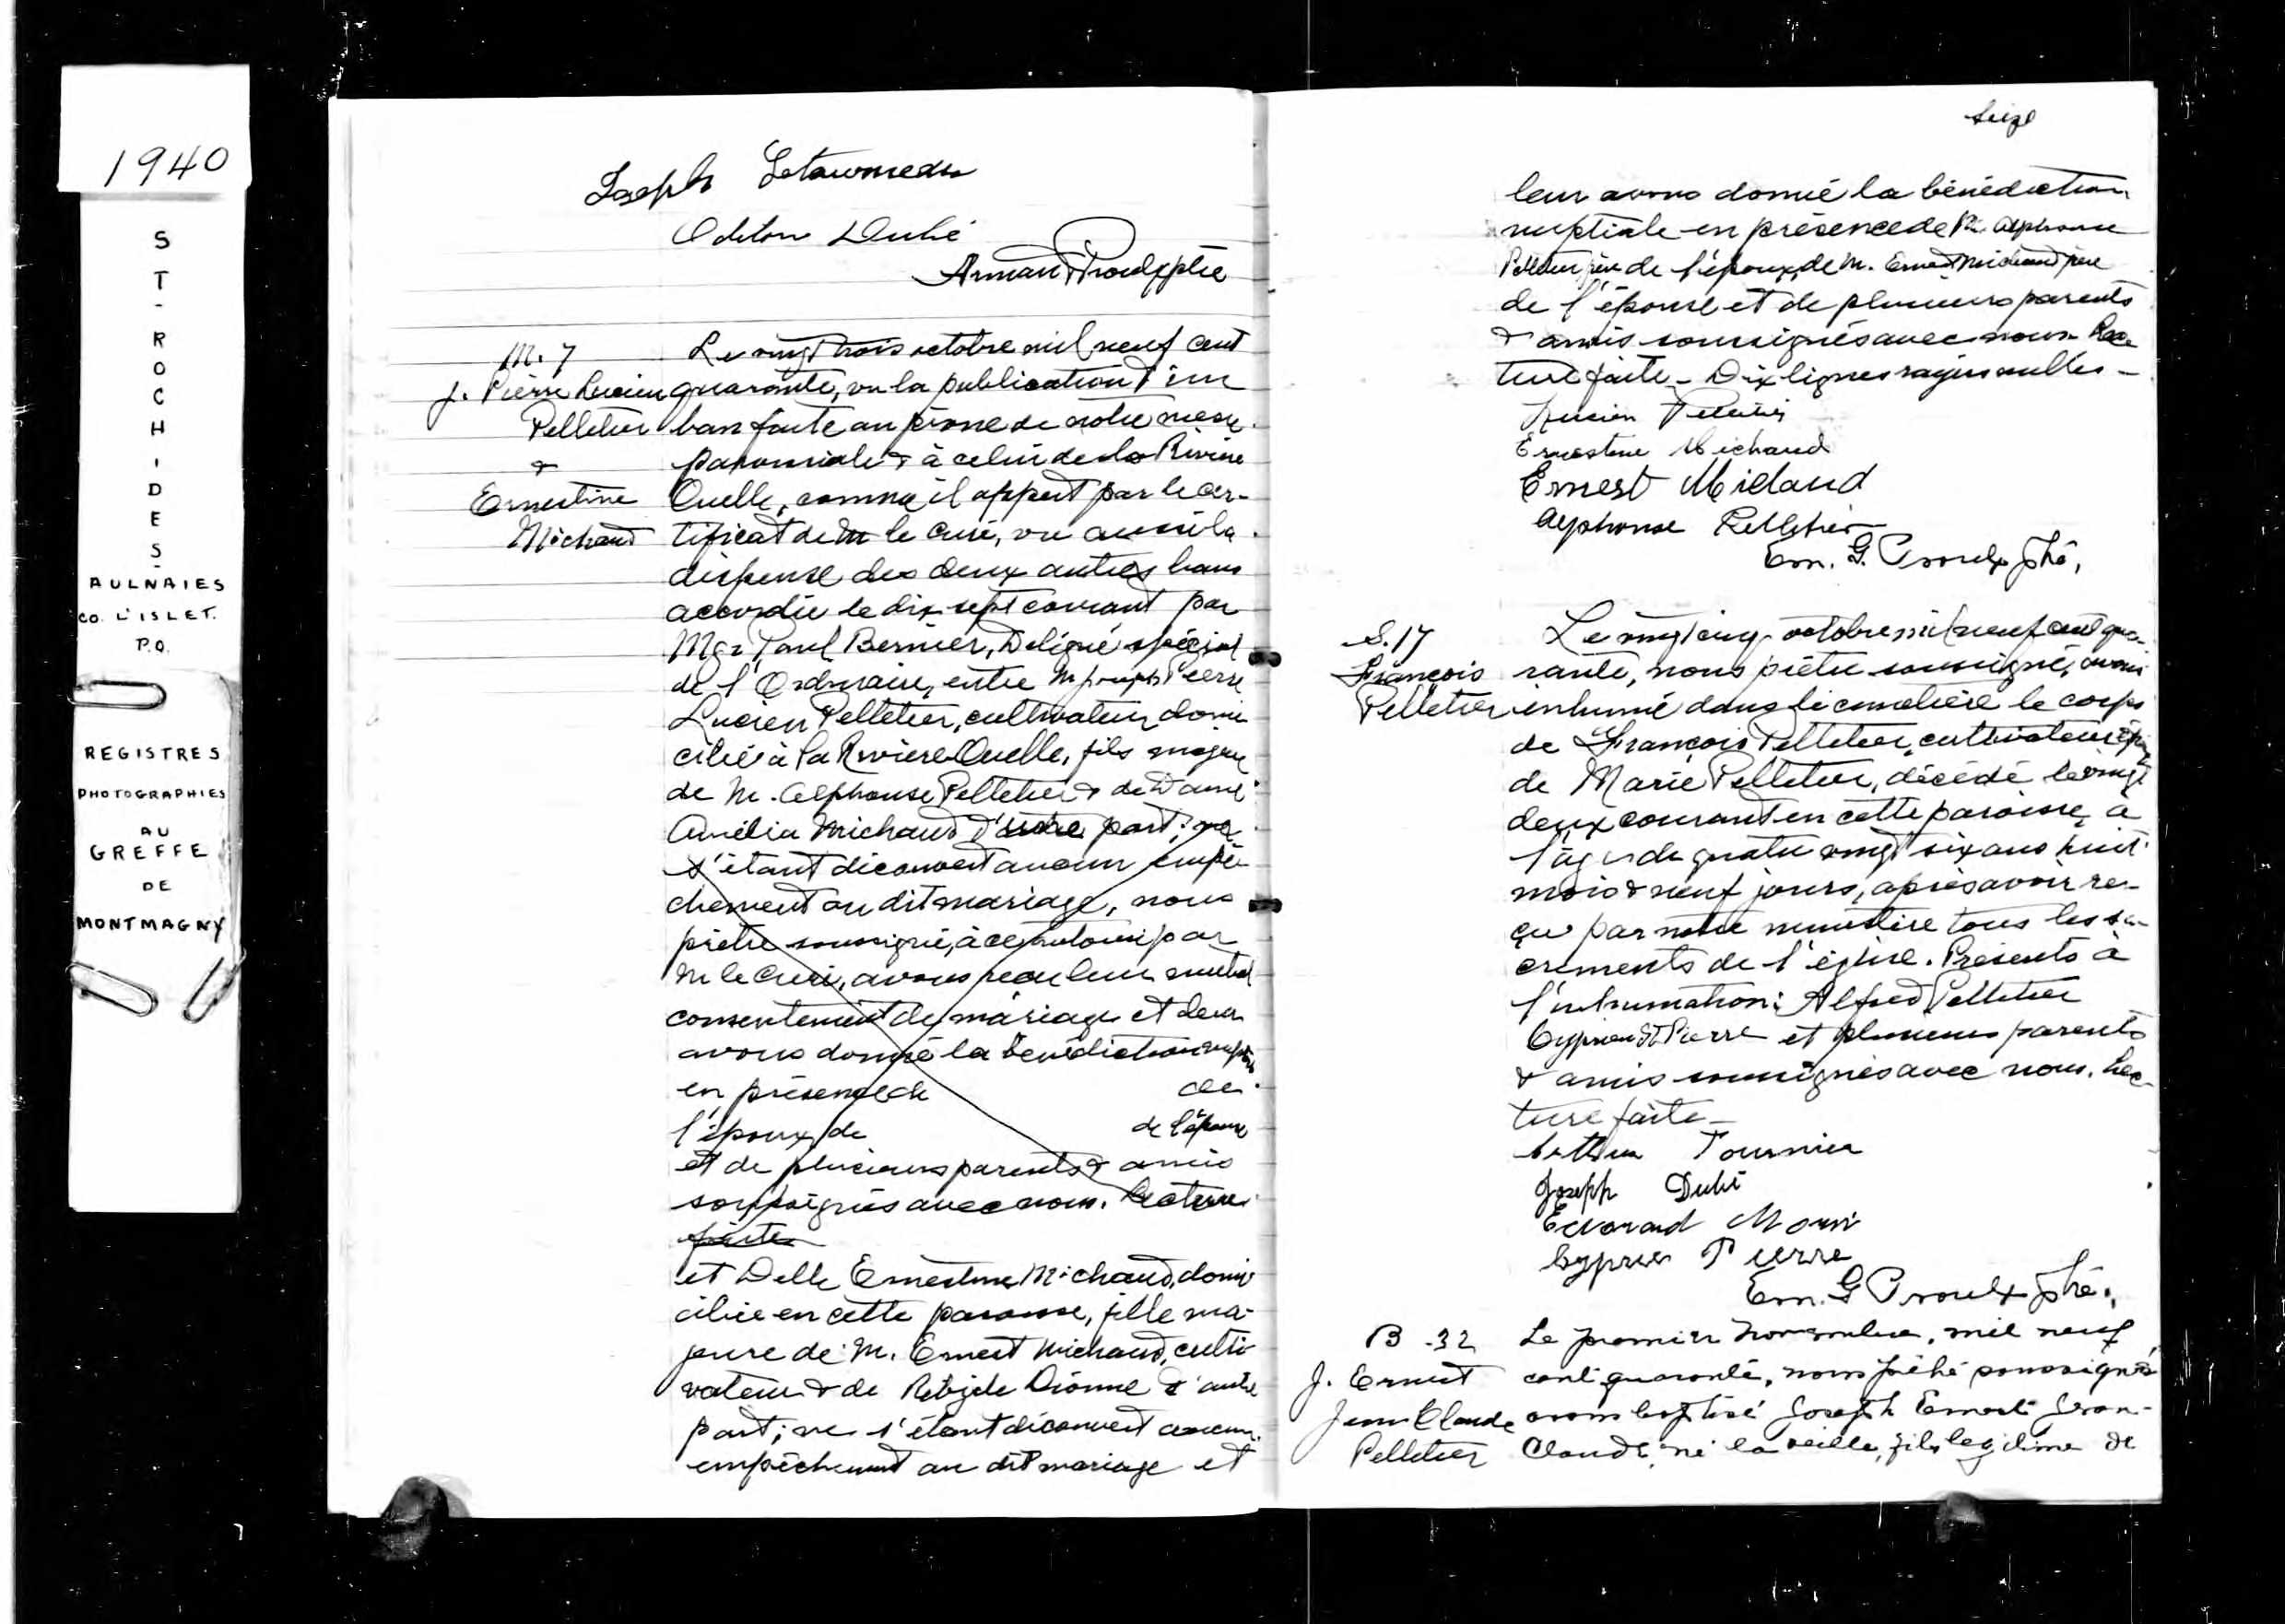 1940
S
T
-
R
O
C
H
-
D
E
S
-
AULNAIES
CO. L'ISLET.
P.Q.
REGISTRES
PHOTOGRAPHIES
AU
GREFFE
DE
MONTMAGNY
Joseph
Odilon Dubé
Armand Proulx ptre
M. 7
J. Pierre Lucien
Pelletier
&
Ernestine
Michaud
Le vingt trois octobre mil neuf cent
quarante, vu la publication d'un
ban faite au prône de notre messe
paroissiale & à celui de la Rivière
Ouelle, comme il appert par le cer-
tificat de M le curé, vu aussi la
dispense des deux autres bans
accordée le dix sept courant par
Mgr Paul Bernier, Délégué spécial
de l'Ordinaire, entre M Joseph Pierre
Lucien Pelletier, cultivateur domi
cilié à la Rivière Ouelle, fils majeur
de M. Alphonse Pelletier & de Dame
Amélia Michaud d'une part; ne
s'étant découvert aucun empê
chement au dit mariage, nous
prêtre soussigné, à ce autorisé par
M le Curé, avons reçu leur mutuel
consentement de mariage et leur
avons donné la bénédiction nuptiale
en présence de de
l'époux de de l'épouse
et de plusieurs parents & amis
soussignés avec nous. Lecture
faite
et Delle Ernestine Michaud, domi
ciliée en cette paroisse, fille ma-
jeure de M. Ernest Michaud, culti
vateur & de Dionne d'autre
part; ne s'étant découvert aucun
empêchement au dit mariage et
Seize
leur avons donné la bénédiction
nuptiale en présence de M. Alphonse
Pelletier père de l'époux, de M. Ernest Michaud père
de l'épouse et de plusieurs parents
& amis soussignés avec nous. Lec
ture faite - Dix lignes rayées nulles -
Lucien Pelletier
Ernestine Michaud
Ernest Michaud
Alphonse Pelletier
Em. G. Proulx ptre,
S. 17
François
Pelletier
Le vingt cinq octobre mil neuf cent qua-
rante, nous prêtre soussigné, avons
inhumé dans le cimetière le corps
de François Pelletier, cultivateur époux
de Marie Pelletier, décédé le vingt
deux courant en cette paroisse, à
l'âge de quatre vingt six ans huit
mois & neuf jours, après avoir re-
çu par notre ministère tous les sa-
crements de l'église. Présents à
l'inhumation: Alfred Pelletier
Cyprien St Pierre et plusieurs parents
& amis soussignés avec nous. Lec-
ture faite -
Fournier
Joseph Dubé
Edouard Morin
Cyprien Pierre
Em. G Proulx ptre.
B - 32
J. Ernest
Jean Claude
Pelletier
Le premier novembre, mil neuf
cent quarante, nous prêtre soussigné
avons baptisé Joseph Ernest Jean-
Claude, né la veille, fils légitime de